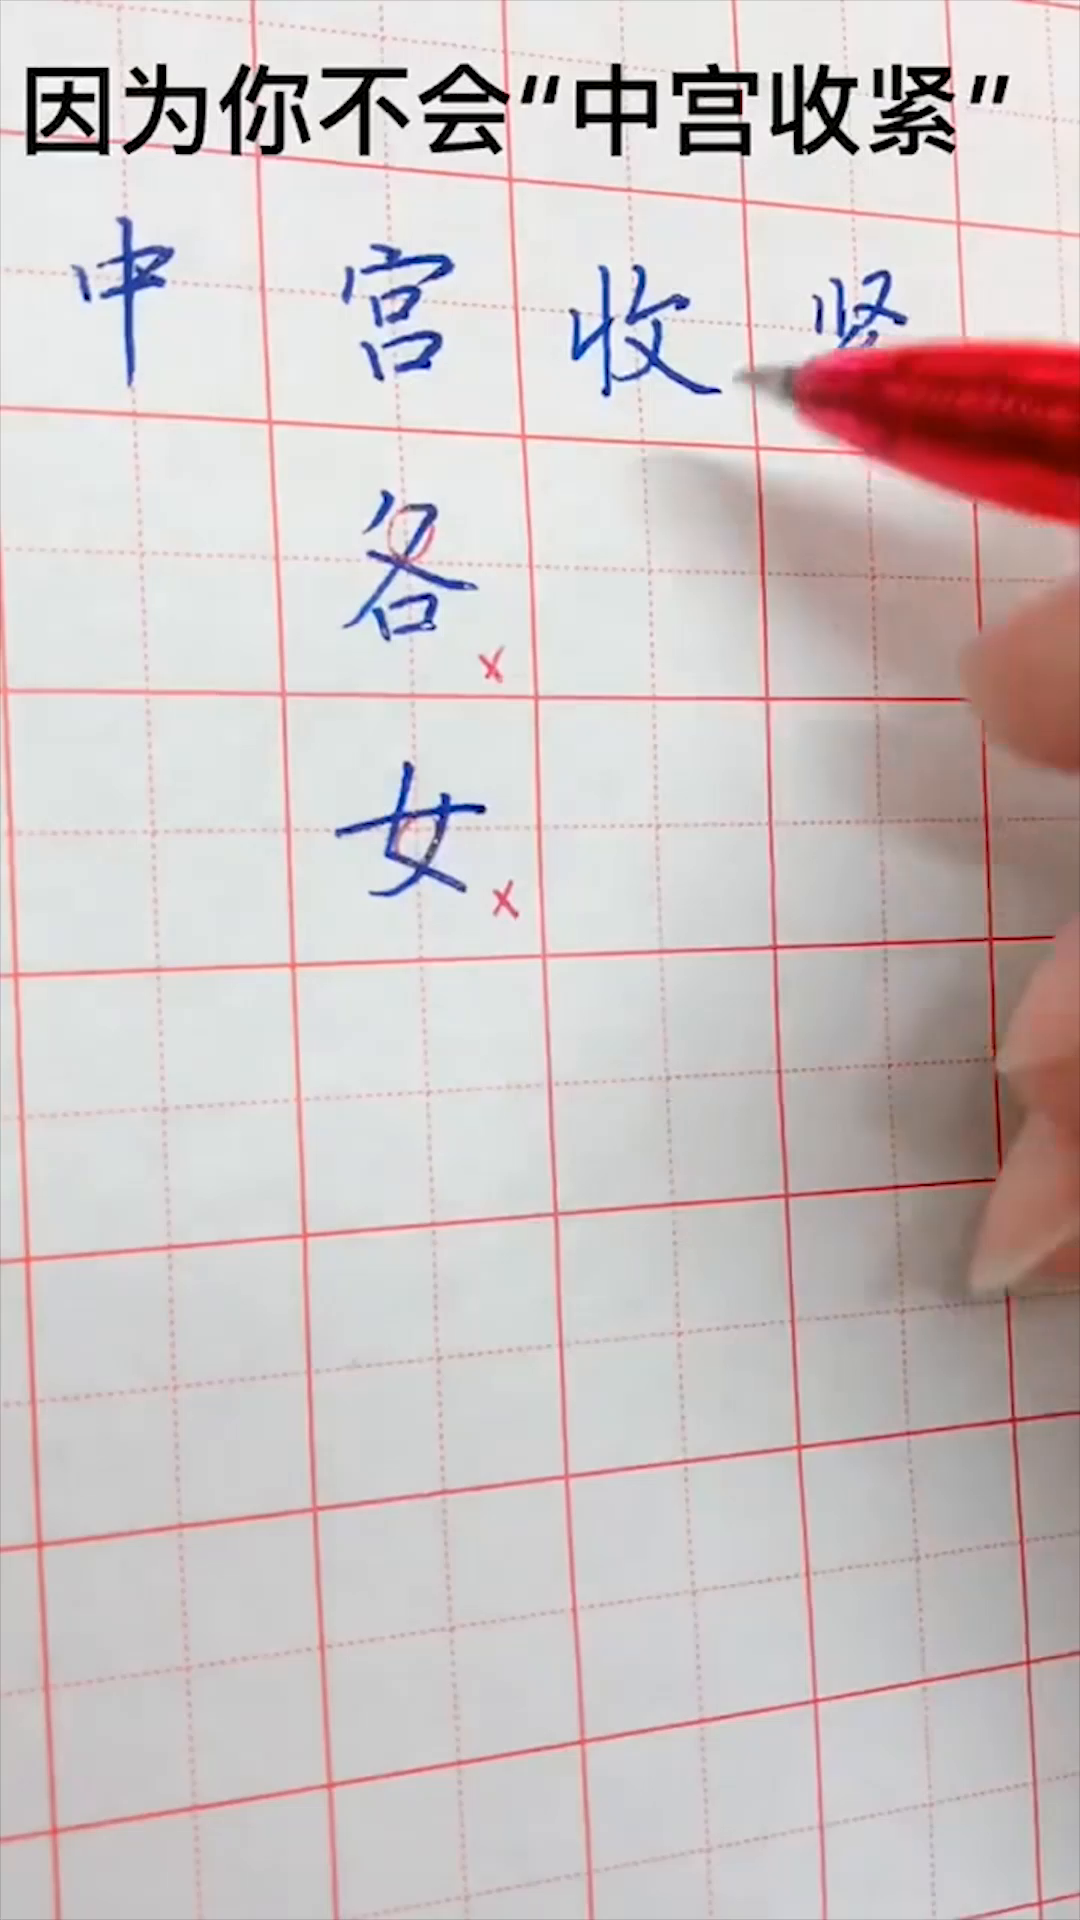 因为你不会“中宫收紧”
中 宫 收 紧
各 x
女 x